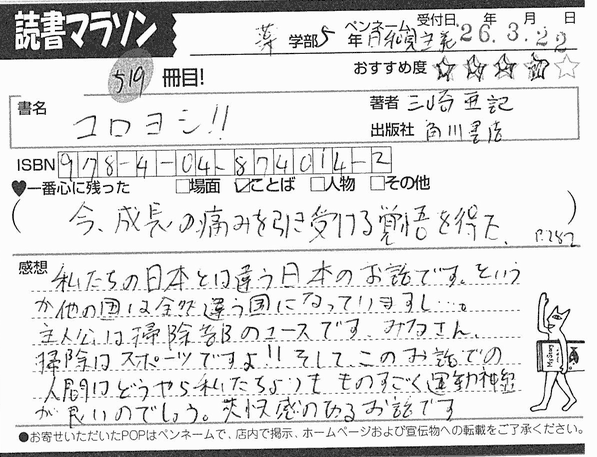 読書マラソン
薬 学部 5 年 ペンネーム 月和見主義 受付日 26.年3.月22日
519 冊目! おすすめ度
書名 コロヨシ!!
著者 三崎亜記
出版社 角川書店
ISBN 978-4-04-874014-2
♥一番心に残った □場面 ☑ことば □人物 □その他
(今、成長の痛みを引き受ける覚悟を得た。 P.282)
感想 私たちの日本とは違う日本のお話です。という
か他の国は全然違う国になっていますし…。
主人公は掃除部のエースです。みなさん、
掃除はスポーツですよ!! そして、このお話での
人間はどうやら私たちよりも ものすごく運動神経
が良いのでしょう。爽快感のあるお話です
●お寄せいただいたPOPはペンネームで、店内で掲示、ホームページおよび宣伝物への転載をご了承ください。